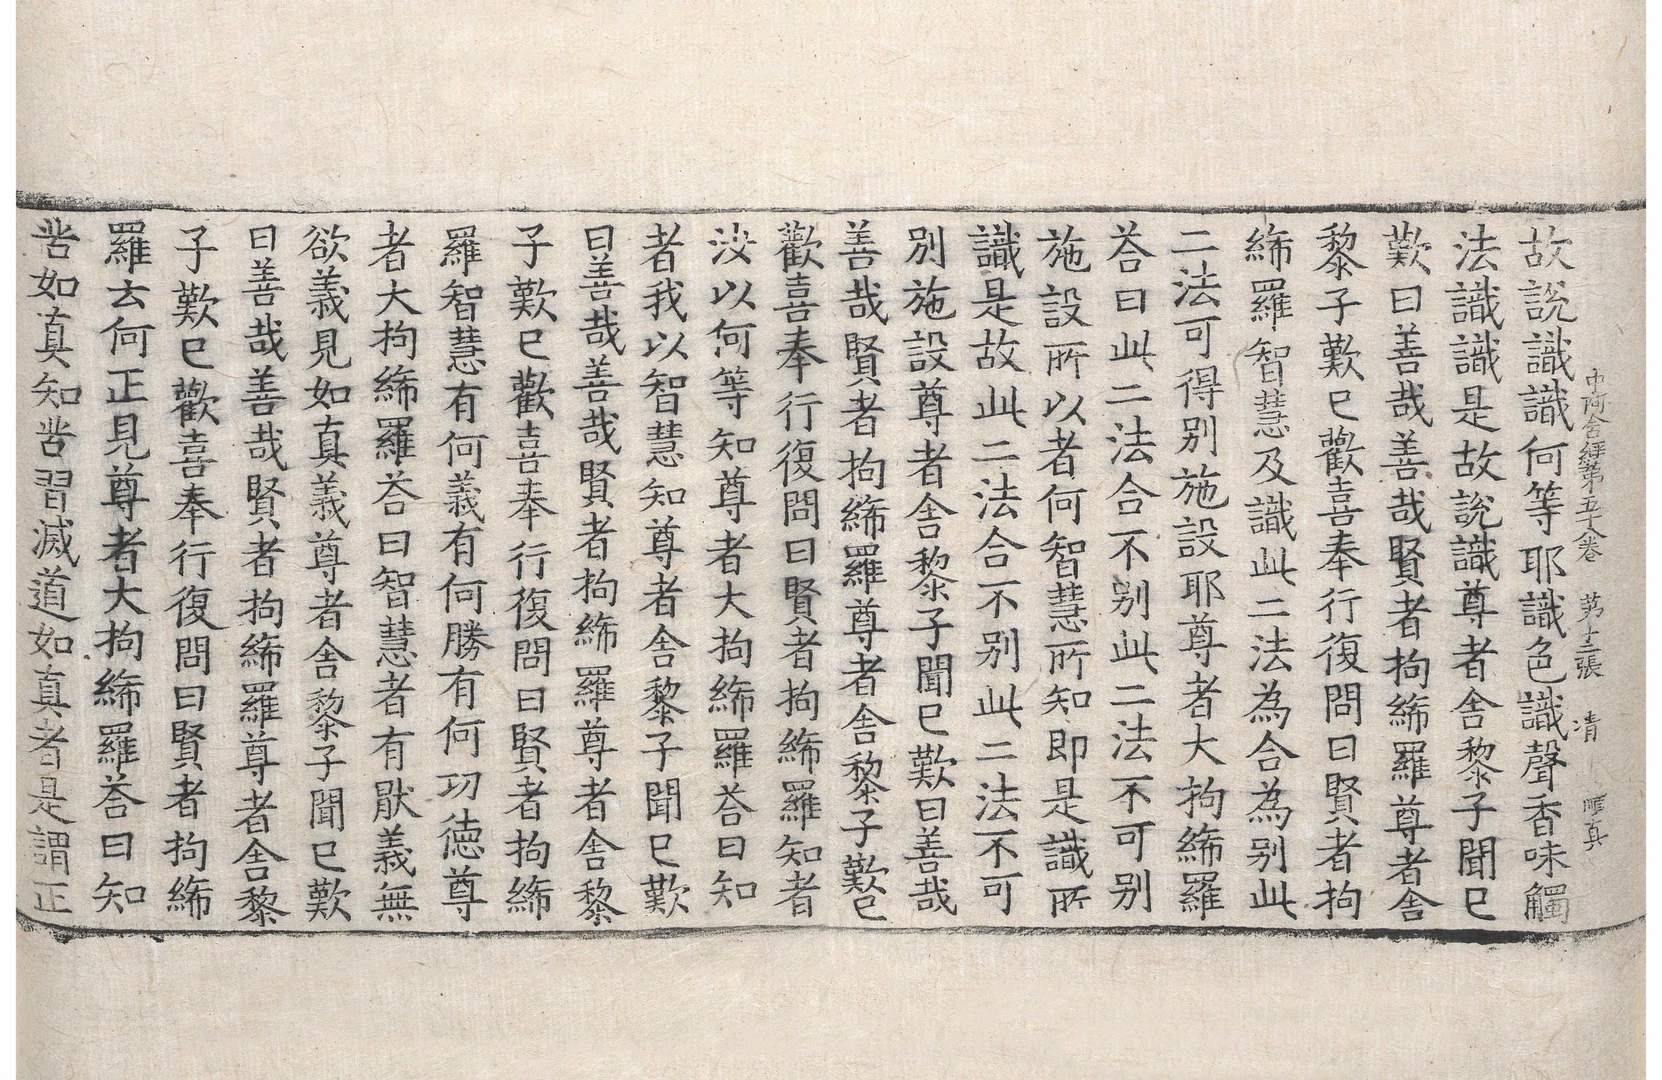 中阿含經第五十八卷 第十三張 清
故說識識何等耶識色識聲香味觸
法識識是故說識尊者舍黎子聞已
歎曰善哉善哉賢者拘絺羅尊者舍
黎子歎已歡喜奉行復問曰賢者拘
絺羅智慧及識此二法為合為別此
二法可得別施設耶尊者大拘絺羅
荅曰此二法合不別此二法不可別
施設所以者何智慧所知即是識所
識是故此二法合不別此二法不可
別施設尊者舍黎子聞已歎曰善哉
善哉賢者拘絺羅尊者舍黎子歎已
歡喜奉行復問曰賢者拘絺羅知者
汝以何等知尊者大拘絺羅荅曰知
者我以智慧知尊者舍黎子聞已歎
曰善哉善哉賢者拘絺羅尊者舍黎
子歎已歡喜奉行復問曰賢者拘絺
羅智慧有何義有何勝有何功德尊
者大拘絺羅荅曰智慧者有猒義無
欲義見如真義尊者舍黎子聞已歎
曰善哉善哉賢者拘絺羅尊者舍黎
子歎已歡喜奉行復問曰賢者拘絺
羅云何正見尊者大拘絺羅荅曰知
苦如真知苦習滅道如真者是謂正